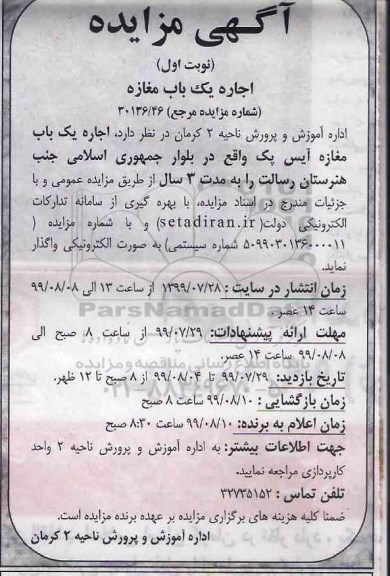 آگهی مزایده
(نوبت اول)
اجاره یک باب مغازه
(شماره مزایده مرجع) ۳۰۱۳۶/۴۶
اداره آموزش و پرورش ناحیه ۲ کرمان در نظر دارد، اجاره یک باب
مغازه آیس پک واقع در بلوار جمهوری اسلامی جنب
هنرستان رسالت را به مدت ۳ سال از طریق مزایده عمومی و با
جزئیات مندرج در اسناد مزایده، با بهره گیری از سامانه تدارکات
الکترونیکی دولت(setadiran.ir) و با شماره مزایده (
۵۰۹۹۰۳۰۱۳۶۰۰۰۰۱۱ شماره سیستمی) به صورت الکترونیکی واگذار
نماید.
زمان انتشار در سایت : ۱۳۹۹/۰۷/۲۸ از ساعت ۱۳ الی ۹۹/۰۸/۰۸
ساعت ۱۴ عصر.
مهلت ارائه پیشنهادات: ۹۹/۰۷/۲۹ از ساعت ۸ صبح الی
۹۹/۰۸/۰۸ ساعت ۱۴ عصر.
تاریخ بازدید: ۹۹/۰۷/۲۹ تا ۹۹/۰۸/۰۴ از ۸ صبح تا ۱۲ ظهر.
زمان بازگشایی : ۹۹/۰۸/۱۰ ساعت ۸ صبح
زمان اعلام به برنده: ۹۹/۰۸/۱۰ ساعت ۸:۳۰ صبح
جهت اطلاعات بیشتر: به اداره آموزش و پرورش ناحیه ۲ واحد
کارپردازی مراجعه نمایید.
تلفن تماس : ۳۲۷۳۵۱۵۲
ضمنا کلیه هزینه های برگزاری مزایده بر عهده برنده مزایده است.
اداره آموزش و پرورش ناحیه ۲ کرمان